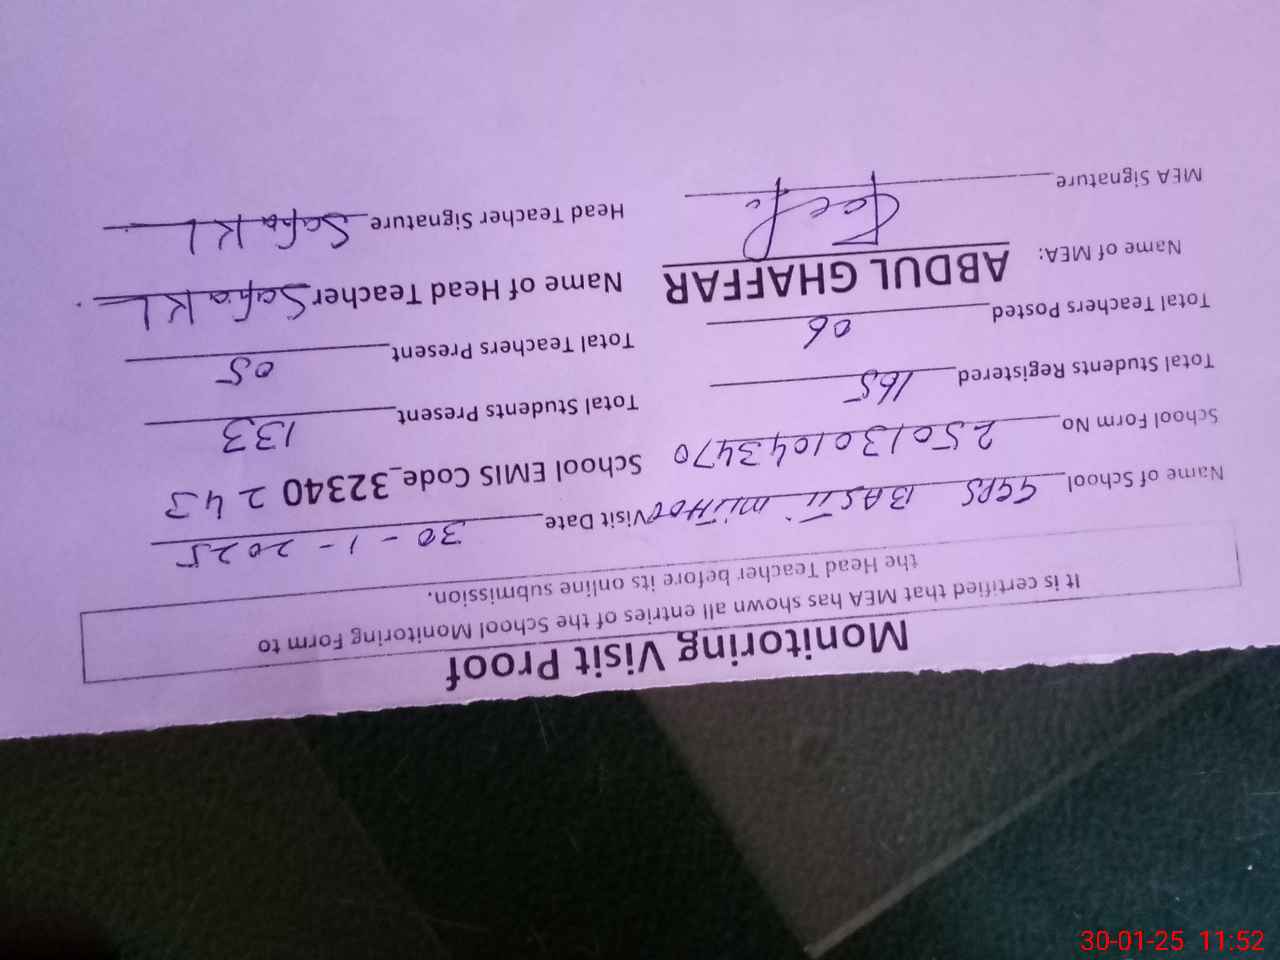 Monitoring Visit Proof
It is certified that MEA has shown all entries of the School Monitoring Form to
the Head Teacher before its online submission.
Name of School GGPS BASTI MITHOO Visit Date 30-1-2025
School Form No 2501301043470 School EMIS Code_32340 243
Total Students Registered 165 Total Students Present 133
Total Teachers Posted 06 Total Teachers Present 05
Name of MEA: ABDUL GHAFFAR Name of Head Teacher Safia KL
MEA Signature Head Teacher Signature Safia KL
30-01-25 11:52